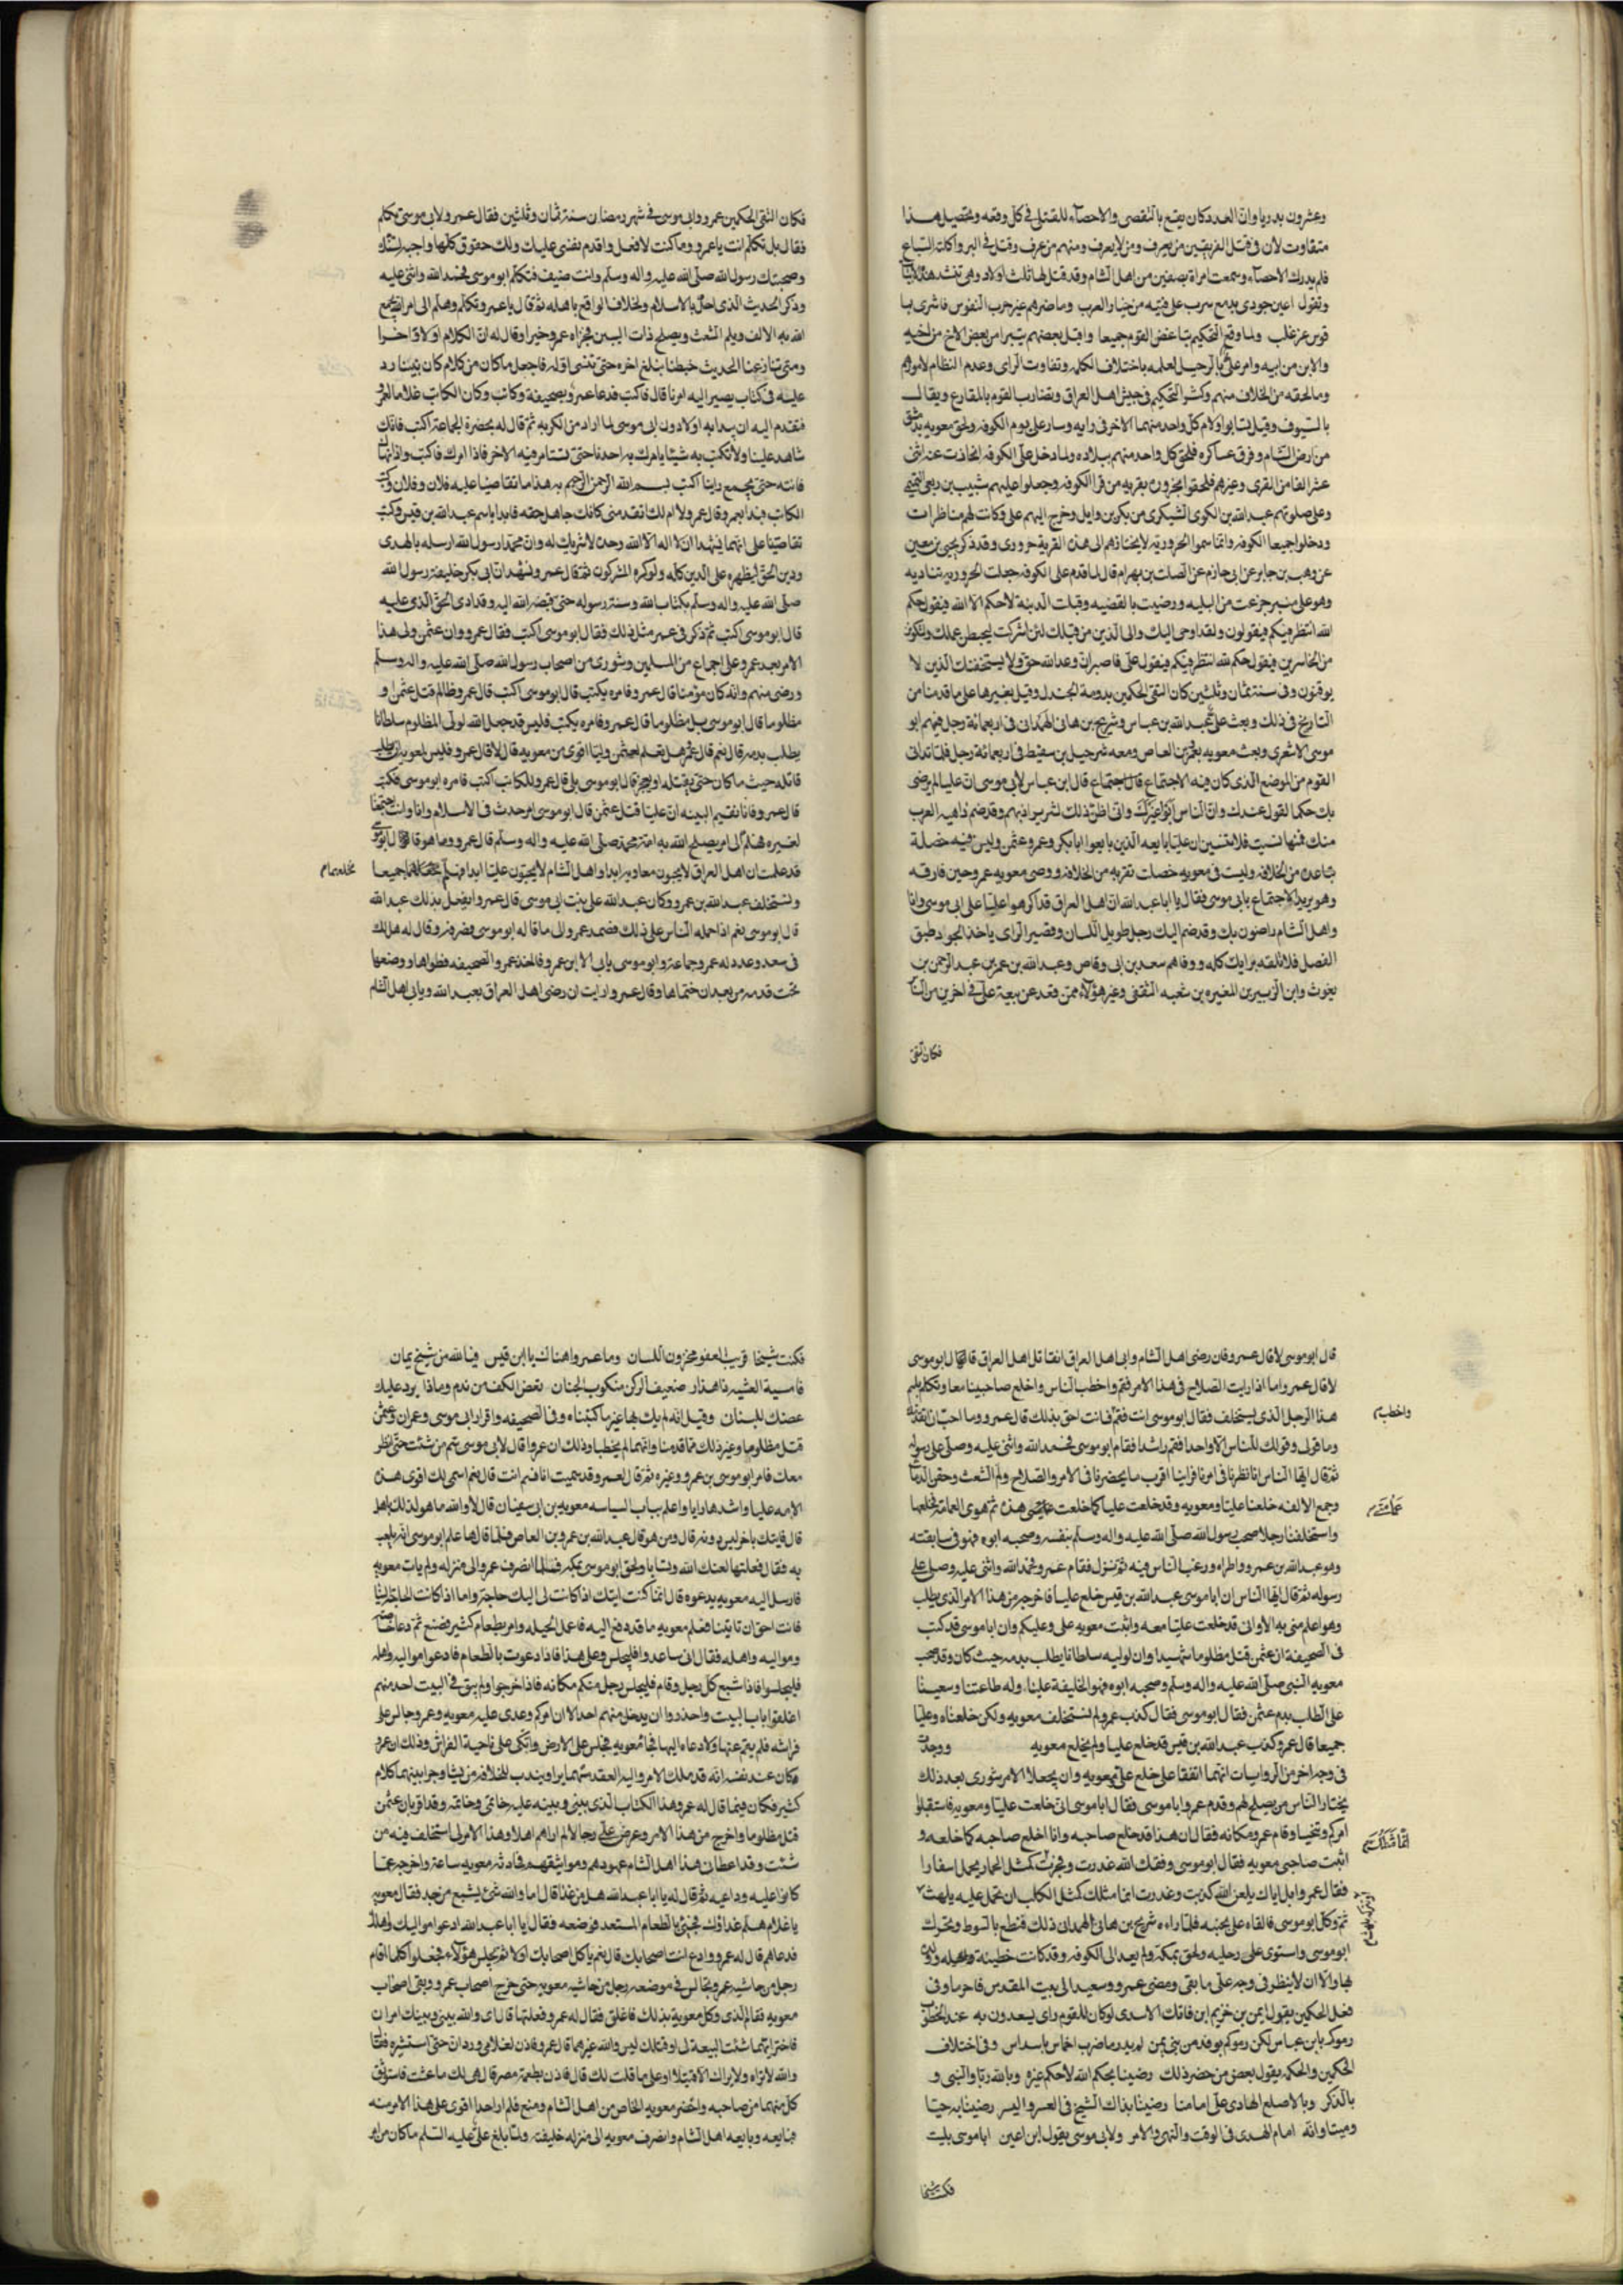 وعشرون بدريا وان العدد كان يقع بالتقصى والاحصاء للقتلى فى كل وقعه وتحصيل هذا
متفاوت لان فى قتلى الفريقين من يعرف ومن لا يعرف ومنهم من غرق وقتل فى البر واكلته السباع
فلم يدركه الاحصاء وسمعت امراة بصفين من اهل الشام وقد قتل لها ثلث اولاد وهى تنشد هذه الابيات
وتقول اعين جودى بدمع سرب على فتيه من خيار العرب وما ضرهم غير حرب النفوس
قوس من غلب ولما وقع التحكيم تباغض القوم جميعا واقبل بعضهم يتبرا من بعض الاخ من اخيه
والابن من ابيه وامر على بالرحيل لعلمه باختلاف الكلمه وتفاوت الراى وعدم النظام لامورهم
وما لحقه من الخلاف منهم وكثر التحكيم فى جيش اهل العراق وتضارب القوم بالمقارع ويقال
بالسيوف وقيل تسابوا ولام كل واحد منهما الاخر فى رايه وسار على يوم الكوفه ولحق معويه بدمشق
من ارض الشام وفرق عساكره فلحق كل واحد منهم ببلاده ولما دخل على الكوفه انحازت عنه اثنى
عشر الفا من القرى وغيرهم فلحقوا بحرورن بقريه من قرا الكوفه وجعلوا عليهم شبيب بن ربعى التميمى
وعلى صلوتهم عبد الله بن الكوى اليشكرى من بكر بن وايل وخرج اليهم على وكانت لهم مناظرات
ودخلوا جميعا الكوفه وانما سموا الحروريه لانحيازهم الى هذه القرية حرورى وقد ذكر يحيى بن معين
عن وهب بن جابر عن ابى حازم عن الصلت بن بهرام قال لما قدم على الكوفه جعلت الحروريه تناديه
وهو على منبر جزعت من البليه ورضيت بالقضيه وقبلت الدنية لا حكم الا الله فيقول حكم
الله انتظر فيكم فيقولون ولقد اوحى اليك والى الذين من قبلك لئن اشركت ليحبطن عملك ولتكونن
من الخاسرين فيقول حكم الله انتظر فيكم فيقول على فاصبر ان وعد الله حق ولا يستخفنك الذين لا
يوقنون وفى سنة ثمان وثلثين كان التقى الحكمين بدومة الجندل وقيل بغيرها على ما قدمنا من
التاريخ فى ذلك وبعث على بعبد الله بن عباس وشريح بن هانى الهمدانى فى اربعمائة رجل فيهم ابو
موسى الاشعرى وبعث معويه بعمرو بن العاص ومعه شرحبيل بن سقيط فى اربعمائة رجل فلما تدانى
القوم من الموضع الذى كان فيه الاجتماع قال ابن عباس لابى موسى ان عليا لم يرضى
بك حكما لفول عندك وان الناس غيرك وانى اظن ذلك لشر يراد بهم وقد ضم داهيه العرب
منك فمها نسيت فلا تنسين ان عليا بايعه الذين بايعوا ابا بكر وعمر وعثمن وليس فيه خصلة
تباعده من الخلافه وليست فى معويه خصلت تقربه من الخلافه ووصى معويه عمرو حين فارقه
وهو يريد الاجتماع بابى موسى فقال يا ابا عبد الله ان اهل العراق قد اكرهوا عليا على ابى موسى وانا
واهل الشام راضون بك وقد ضم اليك رجل طويل اللسان وقصير الراى ياخذ الجواد طبق
الفصل فلا تلقه برايك كله ووفاهم سعد بن ابى وقاص وعبد الله بن عمر بن عبد الرحمن بن
يغوث وابن الزبير بن المغيره بن شعبه الثقفى وغير هؤلاء ممن وقعد عن بيعة على فى اخرين من الناس
فكان التقى
فكان التقى الحكمين عمرو وابى موسى فى شهر رمضان سنة ثمان وثلثين فقال عمرو لابى موسى تكلم
فقال بل تكلم انت يا عمرو وما كنت لافعل واقدم نفسى عليك ولك حقوق كلها واجبه لسنك
وصحبتك رسول الله صلى الله عليه واله وسلم وانت ضيف فتكلم ابو موسى فحمد الله واثنى عليه
وذكر الحديث الذى احل بالاسلام والخلاف الواقع باهله ثم قال يا عمرو تكلم وهلم الى امر يجمع
الله به الالف ويلم الشعث ويصلح ذات البين فجزاه عمرو خيرا وقال له ان الكلام اولا واخرا
ومتى تنازعنا الحديث خبطنا بنلغ اخره حتى ننسى اوله فاجعل ما كان من كلام كان بيننا رد
عليه فى كتاب يصير اليه امرنا قال فاكتب فدعا عمرو بصحيفة وكاتب وكان الكاتب غلاما لعمرو
فتقدم اليه ان يبدا به اولا دون ابى موسى لما اراد من المكر به ثم قال له بحضرة الجماعة اكتب فانك
شاهد علينا ولا تكتب به شيئا يامرك به احدنا حتى تستامر فيه الاخر فاذا امرك فاكتب واذا نهاك
فانته حتى يجمع راينا اكتب بسم الله الرحمن الرحيم هذا ما تقاضينا عليه فلان وفلان وكتب
الكاتب فبدا بعمرو وقال عمرو لا ام لك اتقدمنى كانك جاهل حقه فابدا باسم عبد الله بن قيس وكتب
تقاضينا على انهما يشهدا ان لا اله الا الله وحده لا شريك له وان محمدا رسول الله ارسله بالهدى
ودين الحق ليظهره على الدين كله ولو كره المشركون ثم قال عمرو ونشهد ان ابى بكر خليفة رسول الله
صلى الله عليه واله وسلم بكتاب الله وسنة رسوله حتى قبضه الله اليه وقد ادى الحق الذى عليه
قال ابو موسى اكتب ثم ذكر فى عمر مثل ذلك فقال ابو موسى اكتب فقال عمرو وان عثمن ولى هذا
الامر بعد عمر وعلى اجماع من المسلمين وشورى من اصحاب رسول الله صلى الله عليه واله وسلم
ورضى منهم وانه كان مؤمنا قال عمرو فامره يكتب قال ابو موسى اكتب قال عمرو وظالم قتل عثمن او
مظلوما قال ابو موسى بل مظلوما قال عمرو فامره يكتب فليس قد جعل الله لولى المظلوم سلطانا
يطلب بدمه قال نعم قال عمرو هل تعلم لعثمن وليا اقوى من معويه قال لا قال عمرو فليس لمعويه ان يطلب
قاتله حيث ما كان حتى يقتله او يعجز قال ابو موسى بلى قال عمرو للكاتب اكتب فامره ابو موسى فكتب
قال عمرو فانا نقيم البينه ان عليا قتل عثمن قال ابو موسى امر حدث فى الاسلام وانا وانت اجتمعنا
لغيره فهلم الى امر يصلح الله به امة محمد صلى الله عليه واله وسلم قال عمرو وما هو قال ابو موسى
قد علمت ان اهل العراق لا يحبون معاويه ابدا واهل الشام لا يحبون عليا ابدا فهلم جميعا
نخلعهما م
ونستخلف عبد الله بن عمر وكان عبد الله على بنت ابى موسى قال عمرو ايفعل بذلك عبد الله
قال ابو موسى نعم اذا حمله الناس على ذلك فضمد عمرو الى ما قاله ابو موسى فضرفه وقال له هل لك
فى سعد وعدد له عمرو جماعة وابو موسى يابى الا ابن عمر فاخذ عمرو الصحيفه فطواها ووضعها
تحت قدمه من بعد ان ختماها وقال عمرو ارايت ان رضى اهل العراق بعبد الله ويابى اهل الشام
قال ابو موسى لا قال عمرو فان رضى اهل الشام وابى اهل العراق انقاتل اهل العراق قال ابو موسى
لا قال عمرو واما اذا رايت الصلاح فى هذا الامر فقم واخطب الناس واخلع صاحبينا معا وتكلم باسم
هذا الرجل الذى يستخلف فقال ابو موسى انت فقم فانت احق بذلك قال عمرو وما احب ان اتقدمك
واخطب م
وما قولى وقولك للناس الا واحدا فقم راشدا فقام ابو موسى فحمد الله واثنى عليه وصلى على رسوله
ثم قال ايها الناس انا نظرنا فى امرنا فراينا اقرب ما يحضرنا فى الامر والصلاح ولم الشعث وحقن الدماء
وجمع الالفه خلعنا عليا ومعويه وقد خلعت عليا كما خلعت عمامتى هذه ثم هوى العمامة فخلعها
عمامتى م
واستخلفنا رجلا صحب رسول الله صلى الله عليه واله وسلم بنفسه وصحبه ابوه فهو فى سابقته
وهو عبد الله بن عمر واطراه ورغب الناس فيه ثم نزل فقام عمرو فحمد الله واثنى عليه وصلى على
رسوله ثم قال ايها الناس ان ابا موسى عبد الله بن قيس خلع عليا فاخرجه من هذا الامر الذى يطلب
وهو اعلم منى به الا وانى قد خلعت عليا معه واثبت معويه على وعليكم وان ابا موسى قد كتب
فى الصحيفة ان عثمن قتل مظلوما شهيدا وان لوليه سلطانا يطلب بدمه حيث كان وقد صحب
معويه النبى صلى الله عليه واله وسلم وصحبه ابوه فهو الخليفة علينا وله طاعتنا وسعينا
على الطلب بدم عثمن فقال ابو موسى فقال كذب عمرو لم نستخلف معويه ولكن خلعناه وعليا
جميعا قال عمرو كذب عبد الله بن قيس قد خلع عليا ولم يخلع معويه ووجدت
فى وجه اخر من الروايات انهما اتفقا على خلع على ومعويه وان يجعلا الامر شورى بعد ذلك
يختار الناس من يصلح لهم وقدم عمرو ابا موسى فقال ابا موسى انى خلعت عليا ومعويه فاستقبلوا
امركم وتنحيا وقام عمرو مكانه فقال ان هذا قد خلع صاحبه وانا اخلع صاحبه كما خلعه و
اثبت صاحبى معويه فقال ابو موسى وفقك الله غدرت وفجرت كمثل الحمار يحمل اسفارا
انما مثلك م
فقال عمرو وابل اياك يلعن الله كذبت وغدرت انما مثلك كمثل الكلب ان تحمل عليه يلهث
ثم وكل ابو موسى فالقاه على جنبه فلما راه شريح بن هانى الهمدان ذلك قنطع بالسوط وتحرك
ابو موسى واستوى على رحليه ولحق بمكة ولم يعد الى الكوفه وقد كانت خطيئة واهله وولده
بها والا ان لا ينظر فى وجه على ما بقى ومضى عمرو وسعيد الى بيت المقدس فاحرما وفى
فعل الحكمين يقول ايمن بن خزيم ابن فاتك الاسدى لو كان للقوم راى يسعدون به عند الخطوب
رموكم بابن عباس لكن رموكم بوفد من بنى يمن لم يدر ما ضرب اخماس باسداس وفى اختلاف
الحكمين والحكمه يقول بعض من حضر ذلك رضينا بحكم الله لا حكم غيره وبالله ربا والنبى و
بالذكر وبالاصلع الهادى على امامنا رضينا بذاك الشيخ فى العسر واليسر رضينا به حيا
وميتا وانه امام الهدى فى الوقت والنهى والامر ولابى موسى يقول ابن اعين ابا موسى بليت
فكنت شيخا
فكنت شيخا قريب العفو مخزون اللسان وما عمرو اهنالك يا ابن قيس فيا لله من شيخ يمان
فامسية العشيه ذا هذار ضعيف الركن منكوب الجنان تعض الكف من ندم وماذا يرد عليك
عضك للبنان وقيل انه لم يك بها غير ما كتبناه وفى الصحيفه واقرار ابى موسى وعمرو ان عثمن
قتل مظلوما وغير ذلك مما قدمنا وانهما لم يخطبا وذلك ان عمروا قال لابى موسى سم من شئت حتى انظر
معك فامر ابو موسى بن عمرو وغيره ثم قال لعمرو قد سميت انا فسم انت قال نعم اسمى لك اقوى هذه
الامه عليها واشدها رايا واعلم بباب السياسه معويه بن ابى سفيان قال لا والله ما هو لذلك باهل
قال فاتيك باخر ليس بدونه قال ومن هو قال عبد الله بن عمرو بن العاص فلما قالها علم ابو موسى انه يلعب
به فقال فعلتها لعنك الله وتسابا ولحق ابو موسى بمكه فلما انصرف عمرو الى منزله ولم يات معويه
فارسل اليه معويه يدعوه قال انما كنت اتيك اذا كانت لى اليك حاجة واما اذا كانت الحاجة الينا
فانت احق ان تاتينا فعلم معويه ما قد دفع اليه فاعمل الحيله وامر بطعام كثير فصنع ثم دعا خاصته
ومواليه واهله فقال انى ساعدوا فليجلس وعلى هذا فاذا دعوت بالطعام فادعوا مواليه واهله
فليجلسوا فاذا شبع كل رجل وقام فليجلس رجل منكم مكانه فاذا خرجوا ولم يبق فى البيت احد منهم
اغلقوا باب البيت واحذروا ان يدخل منهم احد الا ان امركم وغدى عليه معويه وعمرو جالس على
فراشه فلم يقم عنها ولا دعاه اليها فجا معويه فجلس على الارض واتكى على ناحية الفراش وذلك ان عمرو
كان عند نفسه انه قد ملك الامر واليه العقد شهما يرا ويندب للخلافه من يشا وجرا بينهما كلام
كثير فكان فيما قال له عمرو هذا الكتاب الذى بينى وبينه عليه خاتمى وخاتمه وقد اقر بان عثمن
قتل مظلوما واخرج من هذا الامر وعرض على رجالا لم اراهم اهلا وهذا الامر لى استخلف فيه من
شئت وقد اعطانى هذا اهل الشام عهودهم ومواثيقهم فحادثه معويه ساعة واخرجه عما
كانوا عليه وداعبه ثم قال له يا ابا عبد الله هل من غذا قال اما والله شئ يشبع من جد فقال معويه
يا غلام هلم غداؤك فجئ بالطعام المستعد فوضعه فقال يا ابا عبد الله ادعوا مواليك واهلك
فدعاهم قال له عمرو وادع انت اصحابك قال نعم ياكل اصحابك اولا ثم يجلس هؤلاء فجعلوا كلما قام
رجل من حاشيه عمرو تجالس فى موضعه رجل من حاشيه معويه حتى خرج اصحاب عمرو وبقى اصحاب
معويه فقام الذى وكل معويه بذلك فاغلق فقال له عمرو فعلتها قال اى والله بينى وبينك امران
فاختر ايهما شئت البيعة لى او قتلك ليس والله غيرهما قال عمرو فاذن لغلامى وردان حتى استشيره قال
والله لا تراه ولا يراك الا قتيلا او على ما قلت لك قال فاذن بطعمة مصر قال هى لك ما عشت فاستوثق
كل منهما من صاحبه واحضر معويه الخاص من اهل الشام ومنع فلم ار احدا اقوى على هذا الامر منه
فبايعه وبايعه اهل الشام وانصرف معويه الى منزله خليفة ولما بلغ على عليه السلم ما كان من امر